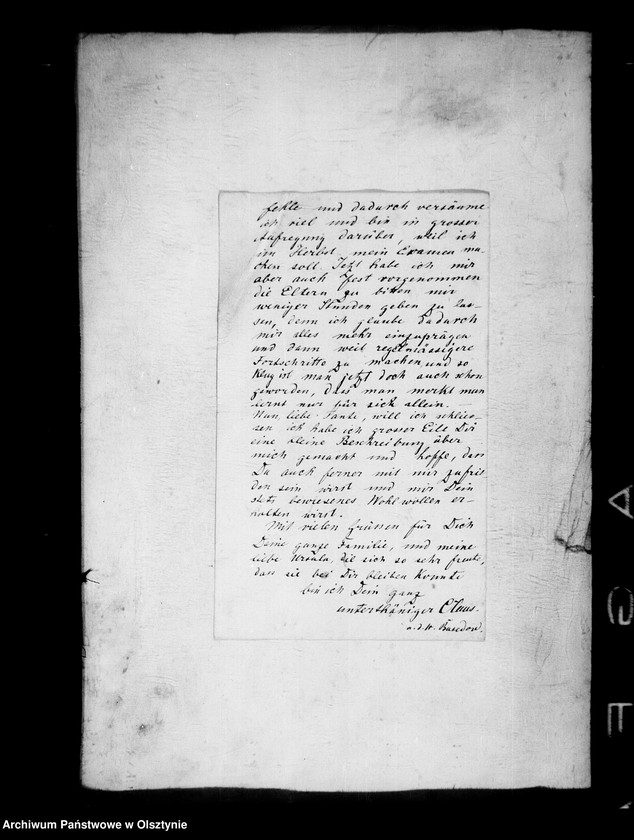 fehle und dadurch versäume
ich viel und bin in grosser
Aufregung darüber, weil ich
im Herbst mein Examen ma-
chen soll. Jetzt habe ich mir
aber auch fest vorgenommen
die Eltern zu bitten mir
weniger Stunden geben zu las-
sen, denn ich glaube dadurch
mir alles mehr einzuprägen
und dann weit regelmässigere
Fortschritte zu machen, und so
klug ist man jetzt doch auch schon
geworden, dass man merkt man
lernt nur für sich allein.
Nun, liebe Tante, will ich schlies-
sen ich habe in grosser Eile Dir
eine kleine Beschreibung über
mich gemacht und hoffe, dass
Du auch ferner mit mir zufrie
den sein wirst und mir Dein
stets bewiesenes Wohlwollen er-
halten wirst.
Mit vielen Grüssen für Dich
Deine ganze Familie, und meine
liebe Ursula, die sich so sehr freute,
dass sie bei Dir bleiben konnte
bin ich Dein ganz
unterthäniger Claus.
a. d. W. Bassedow.
Archiwum Państwowe w Olsztynie